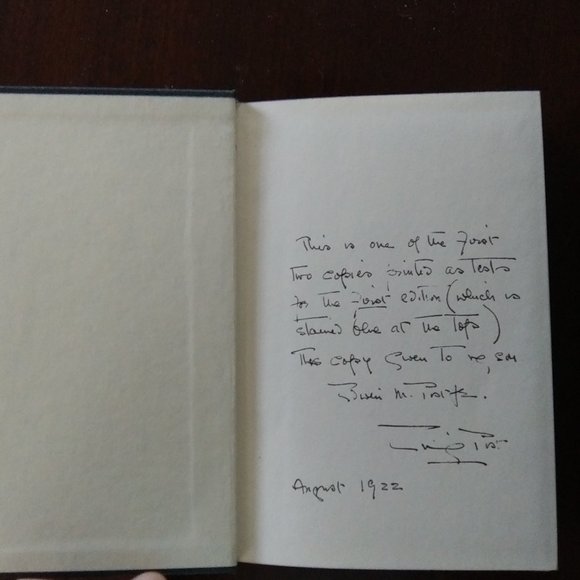 This is one of the First
Two copies printed as Tests
for the First edition (which is
stained blue at the Tops)
This copy given To my son
Bruce M. Post Jr.
Emily Post
August 1922